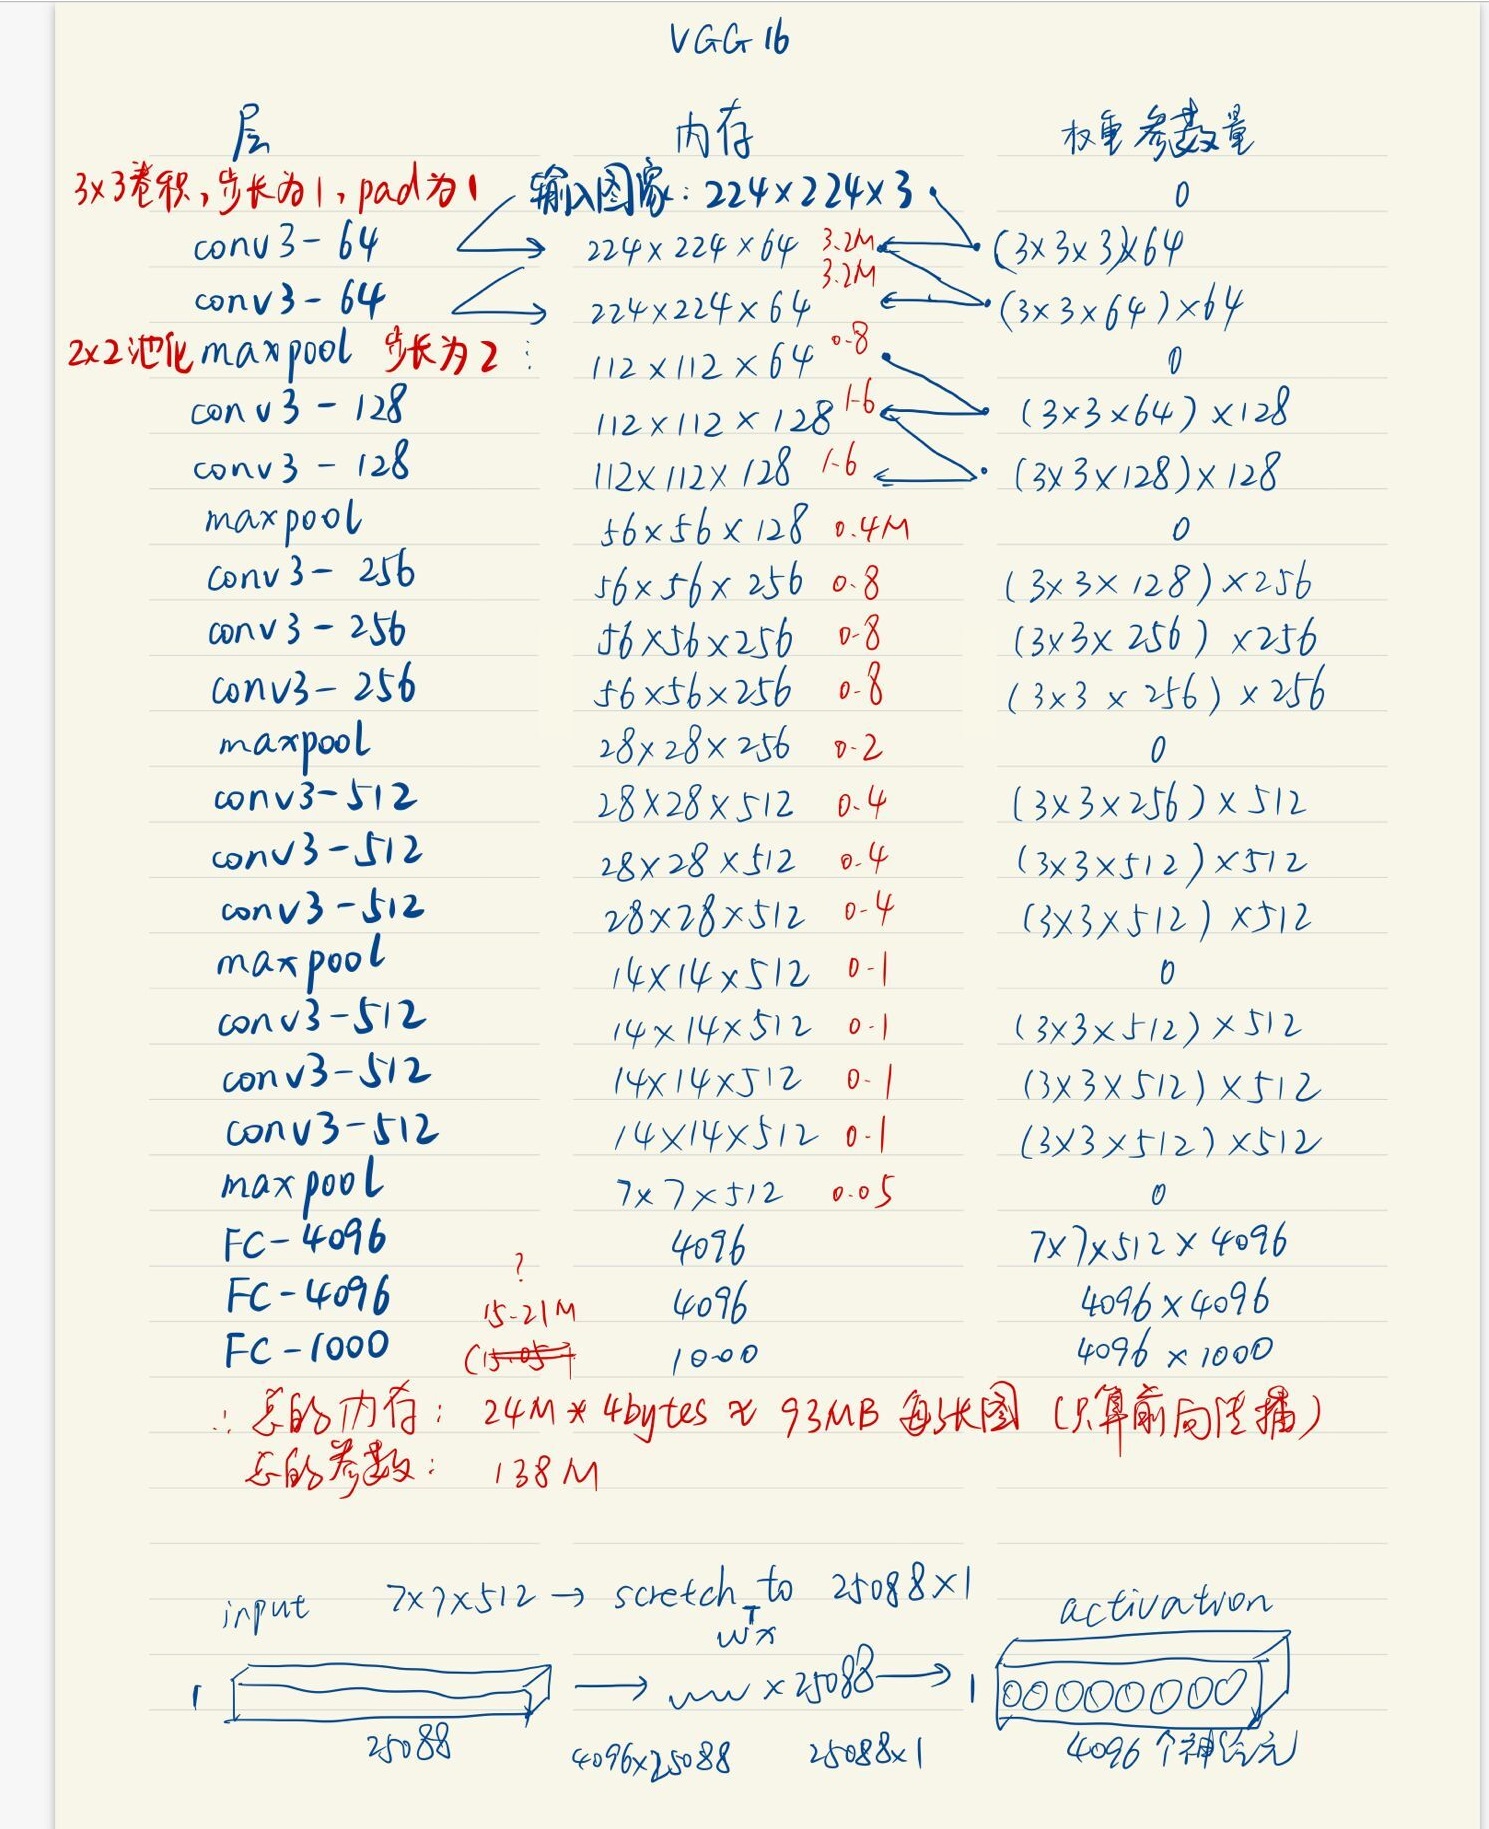 VGG16
层 内存 权重参数量
3×3卷积,步长为1,pad为1 输入图象:224×224×3 0
conv3-64 224×224×64 3.2M (3×3×3)×64
3.2M
conv3-64 224×224×64 (3×3×64)×64
2×2池化 maxpool 步长为2 112×112×64 0.8 0
conv3-128 112×112×128 1.6 (3×3×64)×128
conv3-128 112×112×128 1.6 (3×3×128)×128
maxpool 56×56×128 0.4M 0
conv3-256 56×56×256 0.8 (3×3×128)×256
conv3-256 56×56×256 0.8 (3×3×256)×256
conv3-256 56×56×256 0.8 (3×3×256)×256
maxpool 28×28×256 0.2 0
conv3-512 28×28×512 0.4 (3×3×256)×512
conv3-512 28×28×512 0.4 (3×3×512)×512
conv3-512 28×28×512 0.4 (3×3×512)×512
maxpool 14×14×512 0.1 0
conv3-512 14×14×512 0.1 (3×3×512)×512
conv3-512 14×14×512 0.1 (3×3×512)×512
conv3-512 14×14×512 0.1 (3×3×512)×512
maxpool 7×7×512 0.05 0
FC-4096 4096 7×7×512×4096
?
FC-4096 15.21M 4096 4096×4096
FC-1000 1000 4096×1000
∴总的内存: 24M*4bytes≈93MB 每张图(只算前向传播)
总的参数: 138M
input 7×7×512→scretch to 25088×1 activation
wᵀx
1 → ×25088 → 1
25088 4096×25088 25088×1 4096个神经元